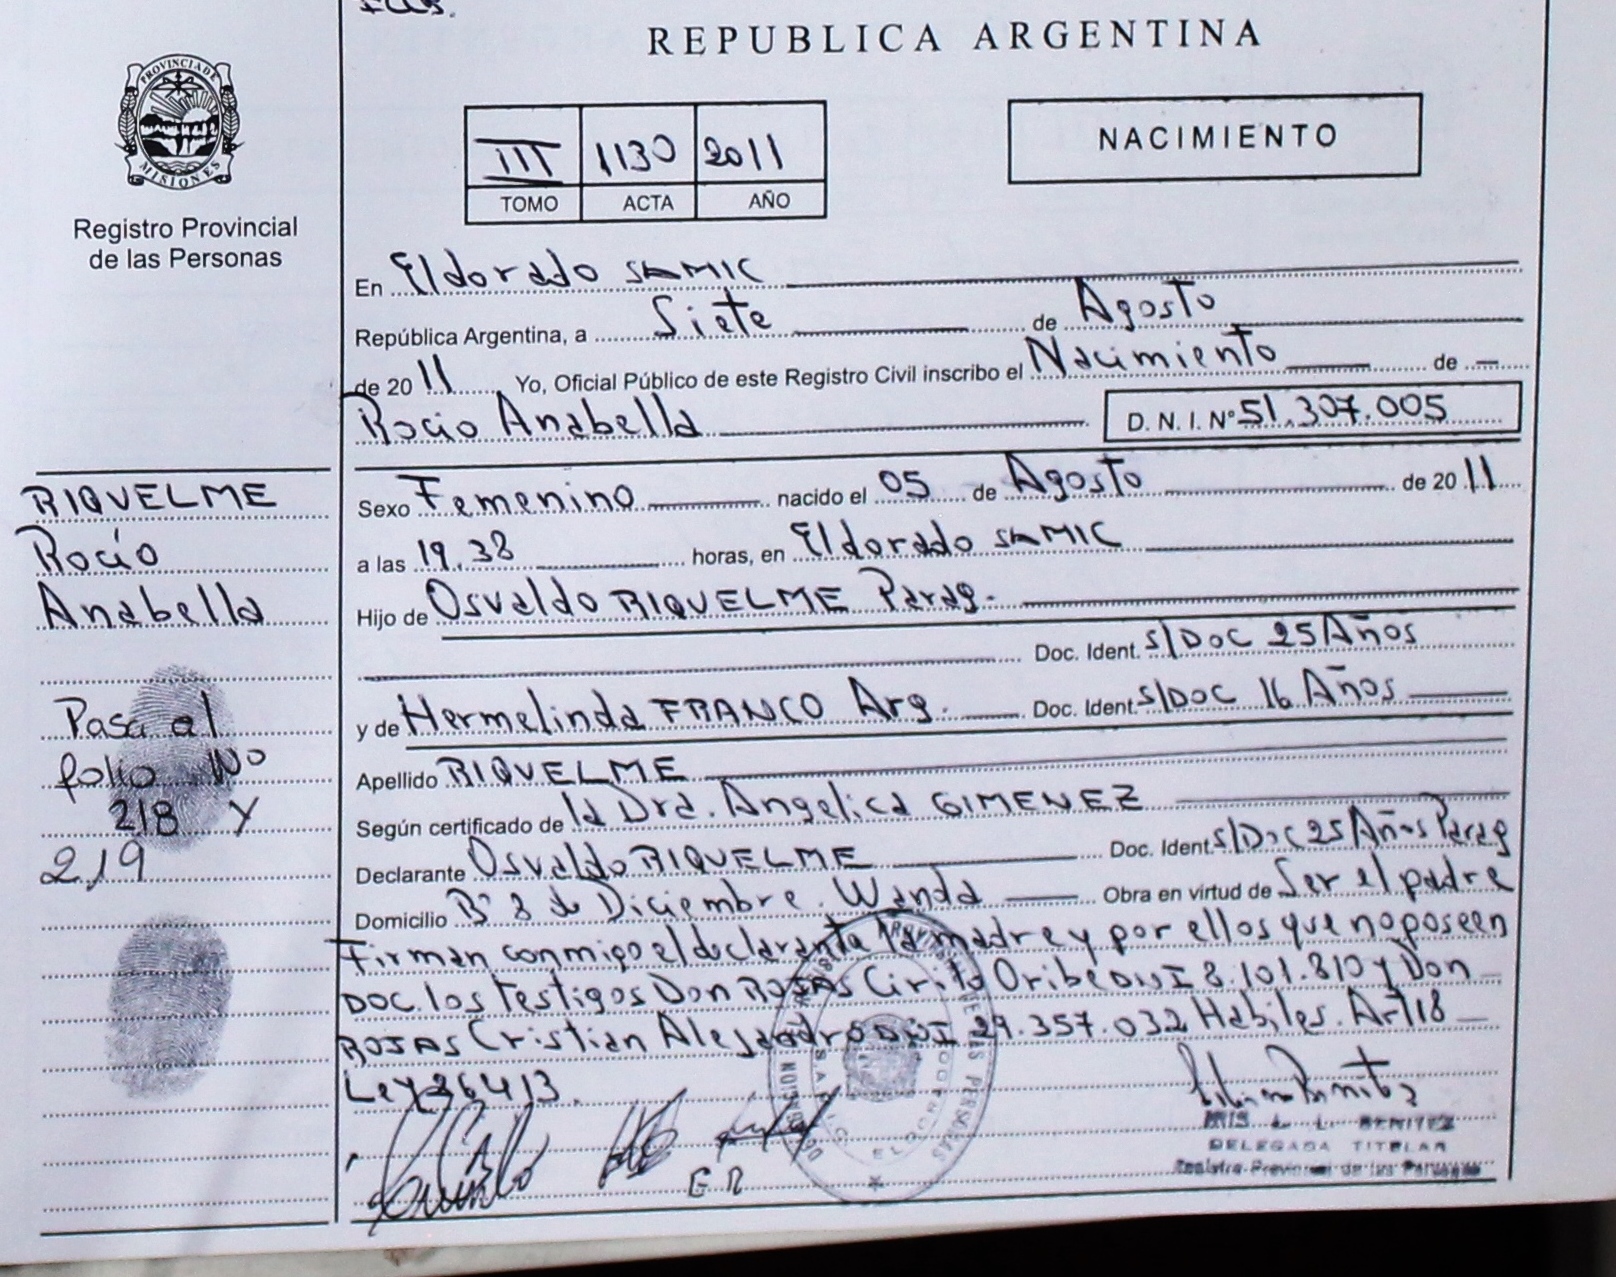 REPUBLICA ARGENTINA
PROVINCIA DE
MISIONES
Registro Provincial
de las Personas
III 1130 2011
TOMO ACTA AÑO
NACIMIENTO
En Eldorado SAMIC
República Argentina, a Siete de Agosto
de 2011 Yo, Oficial Público de este Registro Civil inscribo el Nacimiento de
Rocio Anabella D.N.I. Nº 51.307.005
RIQUELME
Rocío
Anabella
Pasa al
folio No
218 y
219
Sexo Femenino nacido el 05 de Agosto de 2011
a las 19.38 horas, en Eldorado SAMIC
Hijo de Osvaldo RIQUELME Parag.
Doc. Ident. S/DOC 25 Años
y de Hermelinda FRANCO Arg. Doc. Ident. S/DOC 16 Años
Apellido RIQUELME
Según certificado de la Dra. Angelica GIMENEZ
Declarante Osvaldo RIQUELME Doc. Ident. S/Doc 25 Años Parag
Domicilio Bº 8 de Diciembre. Wanda Obra en virtud de Ser el padre
Firman conmigo el declarante la madre y por ellos que no poseen
DOC. los testigos Don ROJAS Cirilo Oribe DNI 8.101.810 y Don
ROJAS Cristian Alejandro DNI 29.357.032 Habiles. Art 18
Ley 26413.
E R
IRIS L. L. BENITEZ
DELEGADA TITULAR
Registro Provincial de las Personas